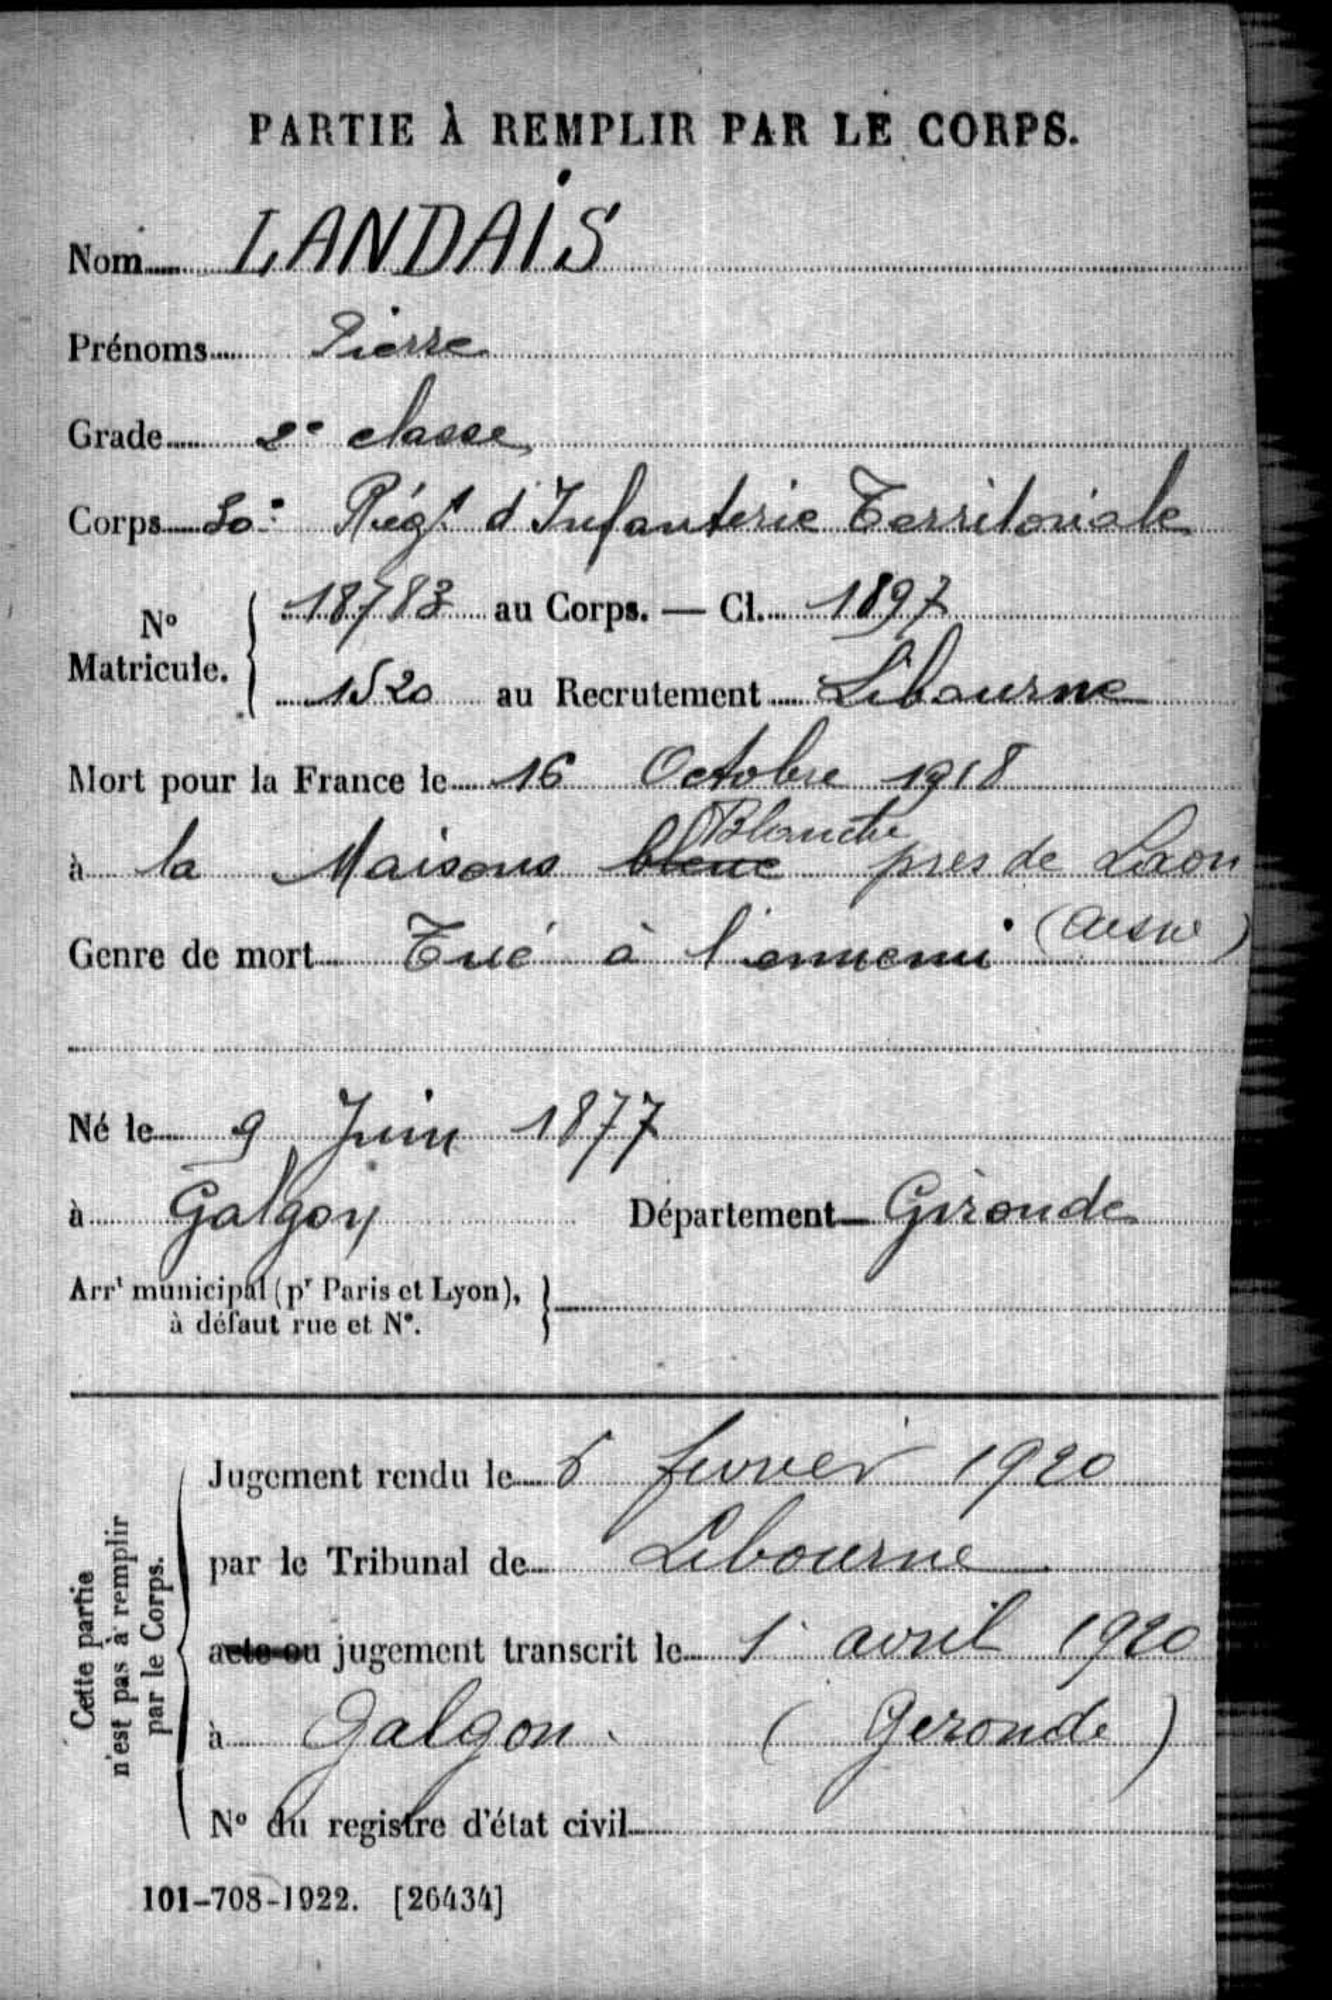 PARTIE À REMPLIR PAR LE CORPS.
Nom LANDAIS
Prénoms Pierre
Grade 2e classe
Corps 30e Régt d'Infanterie Territoriale
No Matricule. 18783 au Corps. — Cl. 1897
1520 au Recrutement Libourne
Mort pour la France le 16 Octobre 1918
Blanche
à la Maisons bleue près de Laon
(Aisne)
Genre de mort Tué à l'ennemi
Né le 9 Juin 1877
à Galgon Département Gironde
Arrt municipal (pr Paris et Lyon),
à défaut rue et No.
Cette partie
n'est pas à remplir
par le Corps.
Jugement rendu le 6 fevrier 1920
par le Tribunal de Libourne
acte ou jugement transcrit le 1 avril 1920
à Galgon (Gironde)
No du registre d'état civil
101-708-1922. [26434]